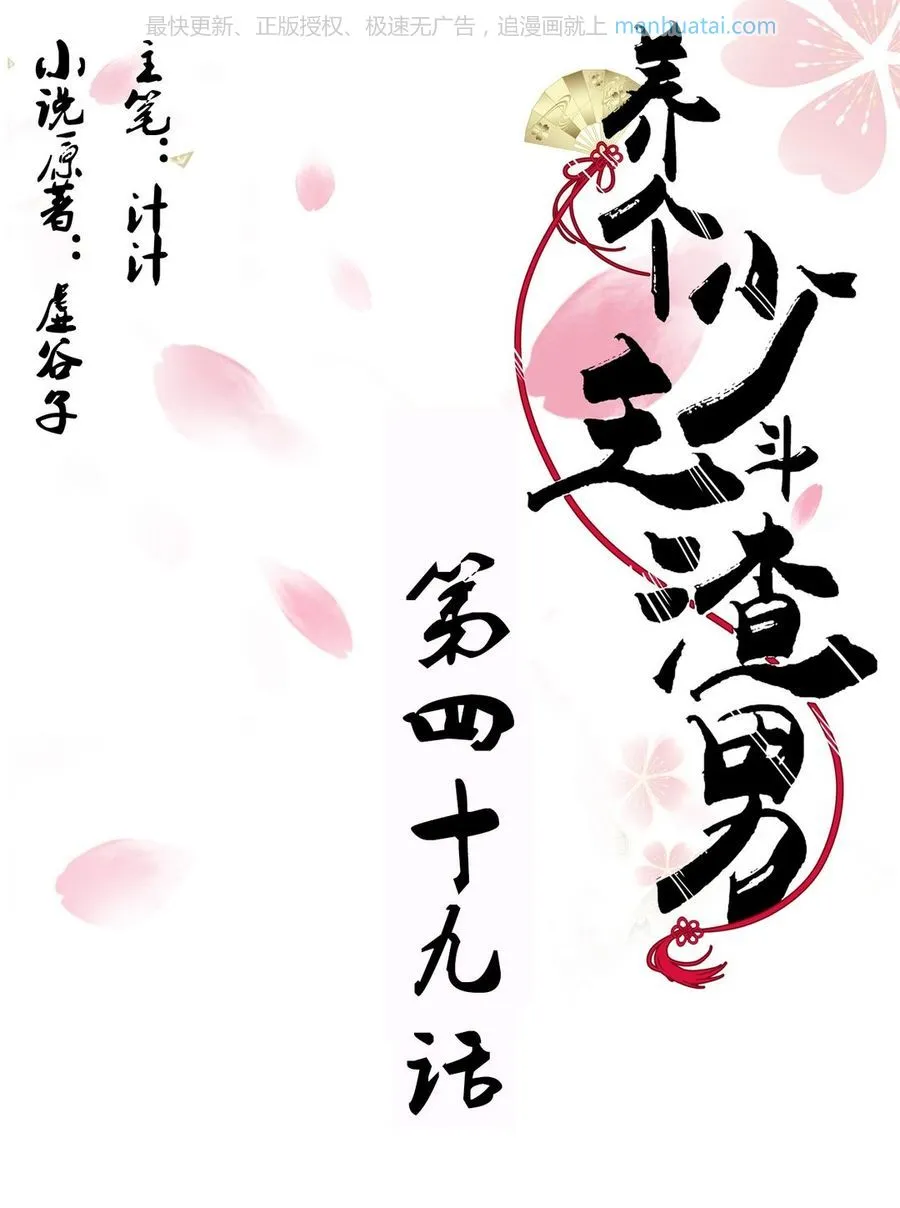 最快更新、正版授权、极速无广告，追漫画就上 manhuatai.com
养个少主斗渣男
第四十九话
主笔：汁汁
小说原著：虚谷子